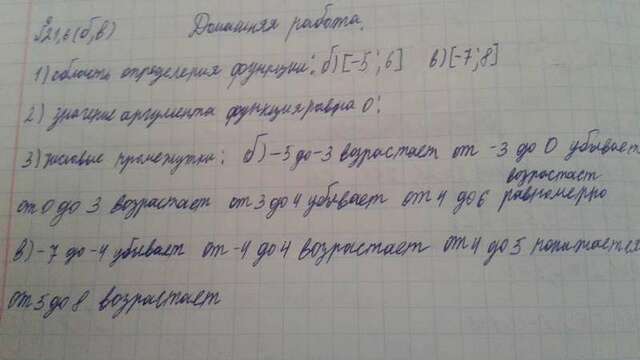 §21,6(б,в) Домашняя работа.
1) область определения функции: б) [-5; 6] в) [-7; 8]
2) значение аргумента функция равна 0:
3) числовые промежутки: б) -5 до -3 возрастает от -3 до 0 убывает
от 0 до 3 возрастает от 3 до 4 убывает от 4 до 6 возрастает равномерно
в) -7 до -4 убывает от -4 до 4 возрастает от 4 до 5 понижается
от 5 до 8 возрастает